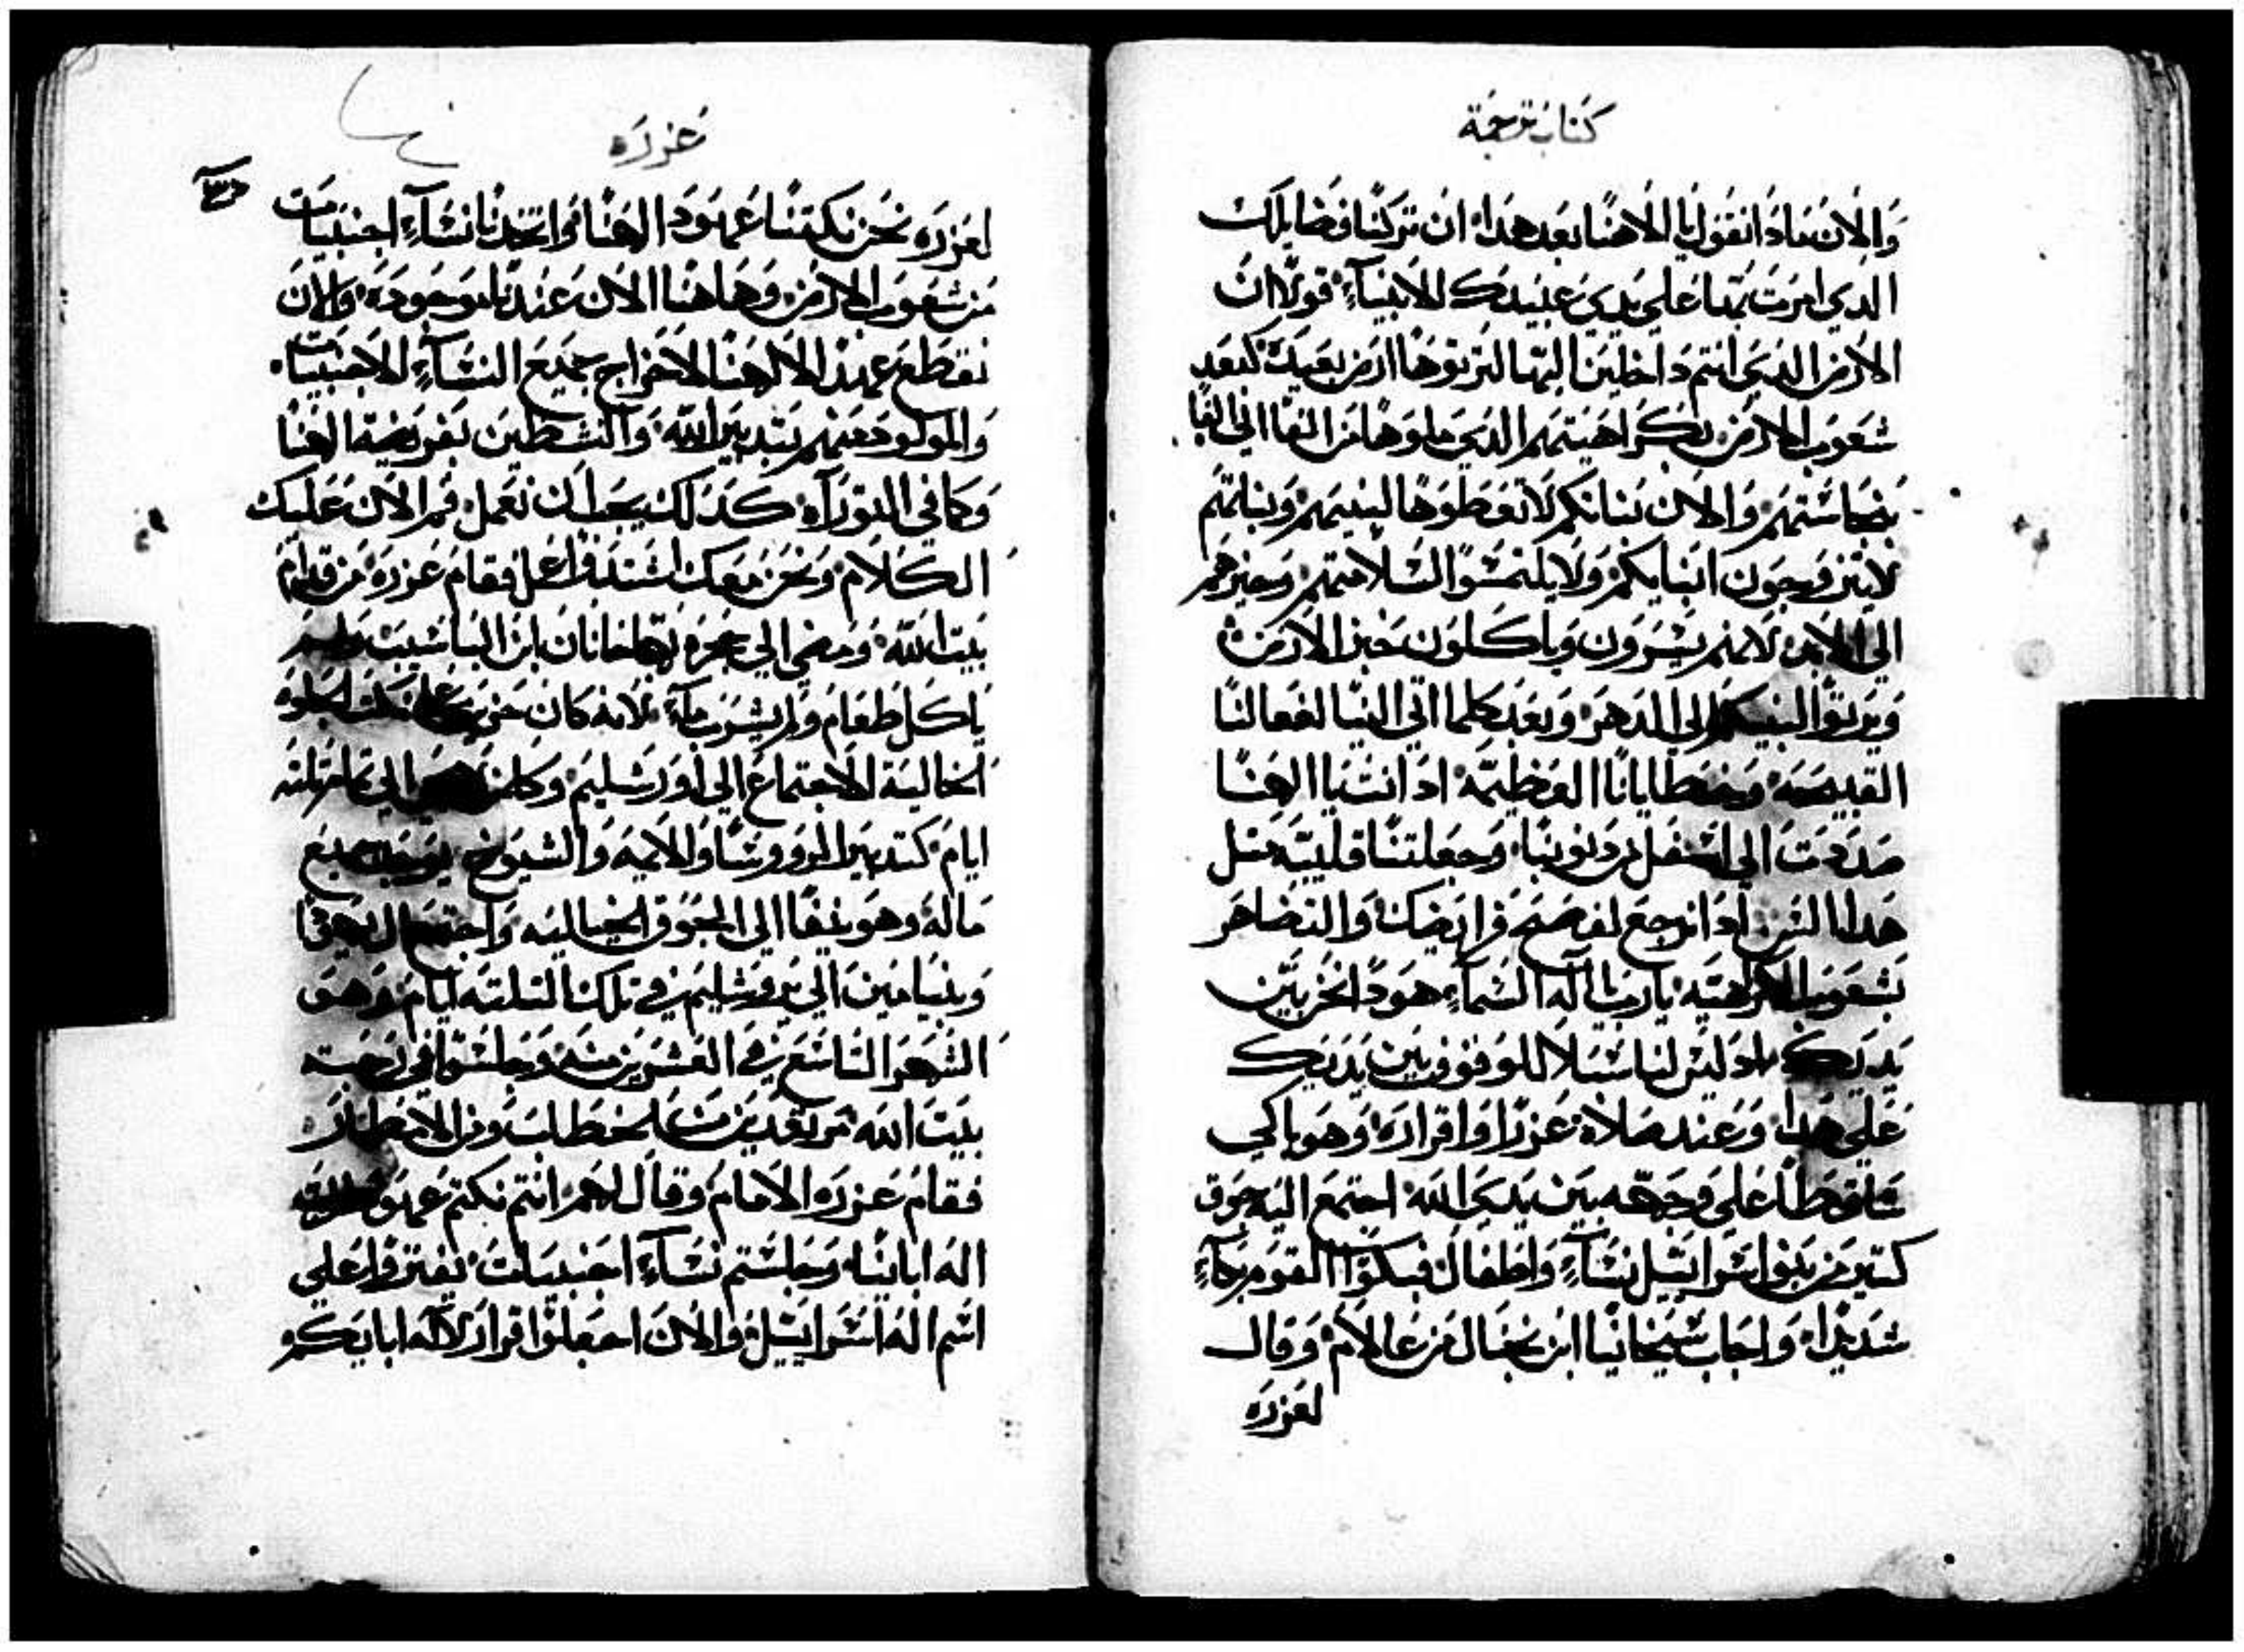 كتاب ترجمة
والان ماذا نقول يا الاهنا بعد هذا ان تركنا فضايلك
الدي امرت بها علي يدي عبيدك الانبياء قولا ان
الارض الدي انتم داخلين اليها لترتوها ارض بعيدة كبعد
شعوب الارض بكراهيتهم الدي ملوها من الفا الي الفا
بنجاستهم والان بناتكم لا تعطوها لبنيهم وبناتهم
لا يتزوجون ابنايكم ولا يلتمسوا السلامتهم وخيرهم
الي الابد لانهم يشرون وياكلون خبز الارض
ويرتوا لبنيكم الي الدهر وبعد كلما اتي الينا لفعالنا
القبيحة وبخطايانا العظيمة اد انت يا الاهنا
صددت الي اسفل من دنوبنا وجعلتنا قليبة مثل
هدا الشر اد انرجع لفصح فرايضك والتضاهر
بشعوب الكراهيه يارب اله السماء هودا نحن بين
يديك اد ليس لنا سبلا للوقوف بين يديك
علي هدا وعند صلاة عزرا واقراره وهو باكي
ساقطا علي وجهه بين يدي الله اجتمع اليه جوق
كتير من بنوا اسراييل نساء واطفال فبكوا القوم بكاء
شديدا واجاب شيخانيا ابن يخيال من عالام وقال
لعزره
عزره
لعزره نحن نكتنا عهود الاهنا واتخدنا نساء اجنبيات
من شعوب الارض وهاهنا الان عندنا موجوده والان
نقطع عهدا لالاهنا لاخراج جميع النساء الاجنبيات
والمولود معهم بتدبير الله والنشطين بفريضة الهنا
وكما في التوراه كدلك يجب ان نعمل قم الان عليك
الكلام ونحن معك اشتد وافعل فقام عزره من قدام
بيت الله ومضي الي حجرة يهاحانان ابن الياشيب ولم
ياكل طعام ولم يشرب ماء لانه كان حزين علي تلك الجلوه
الخاليه الاجتماع الي اورشليم وكلمن الي تمام تلته
ايام كتدبير الرووسا والايمه والشيوخ جميع
ماله وهو ينفا الي الجوق الخياليه واجتمع ال يهودا
وبنيامين الي يروشليم في تلك التلته ايام وهو
الشهر التاسع في العشرين منه وجلسوا في رحبة
بيت الله مرتعدين من الامطار
فقام عزره الامام وقال لهم انتم نكتم عهود
اله اباينا وجلستم نساء اجنبيات يفتروا علي
اسم اله اسراييل والان اجعلوا اقرار لاله ابايكم